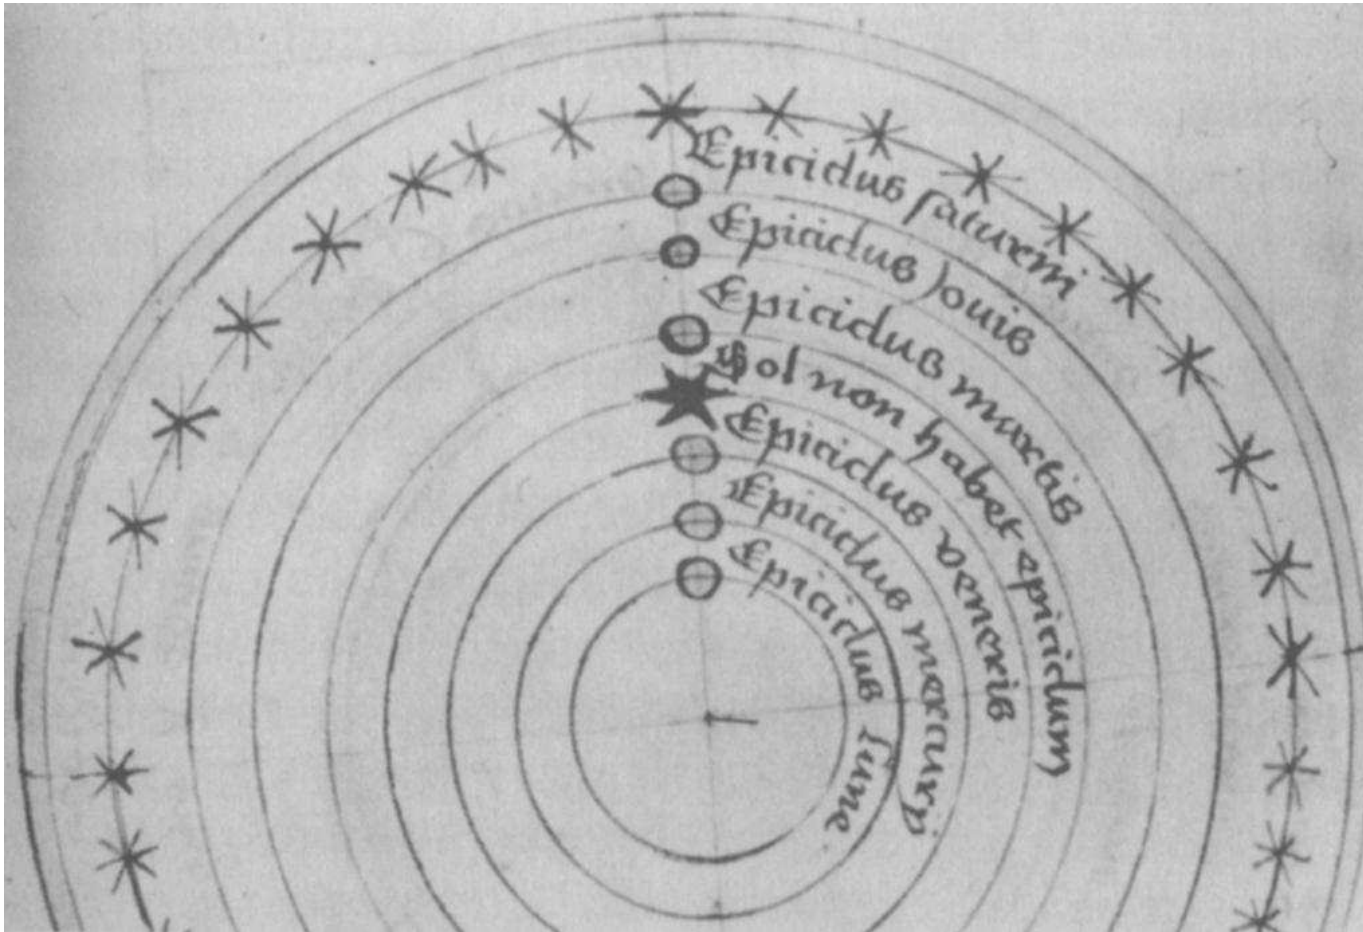 Epiciclus saturni
Epiciclus Jouis
Epiciclus martis
Sol non habet epiciclum
Epiciclus veneris
Epiciclus mercurij
Epiciclus lune